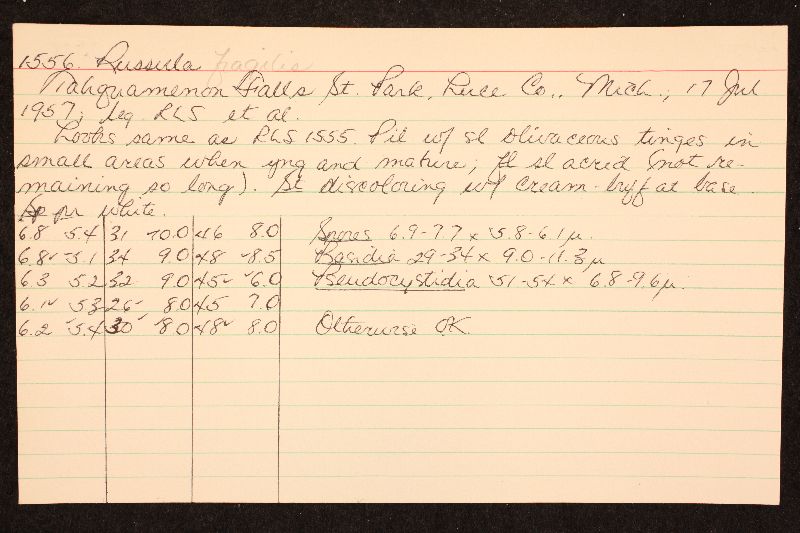 1556. Russula fragilis
Tahquamenon Falls St. Park, Luce Co., Mich., 17 Jul
1957; leg RLS et al.
Looks same as RLS 1555. Pil w/ sl olivaceous tinges in
small areas when yng and mature; fl sl acrid (not re-
maining so long). St discoloring w/ cream-buff at base.
Sp pr white.
6.8 5.4 31 10.0 46 8.0 Spores 6.9-7.7 x 5.8-6.1 µ.
6.8 5.1 34 9.0 48 8.5 Basidia 29-34 x 9.0-11.3 µ
6.3 5.2 32 9.0 45 6.0 Pseudocystidia 51-54 x 6.8-9.6 µ.
6.1 5.3 26 8.0 45 7.0
6.2 5.4 30 8.0 48 8.0 Otherwise OK